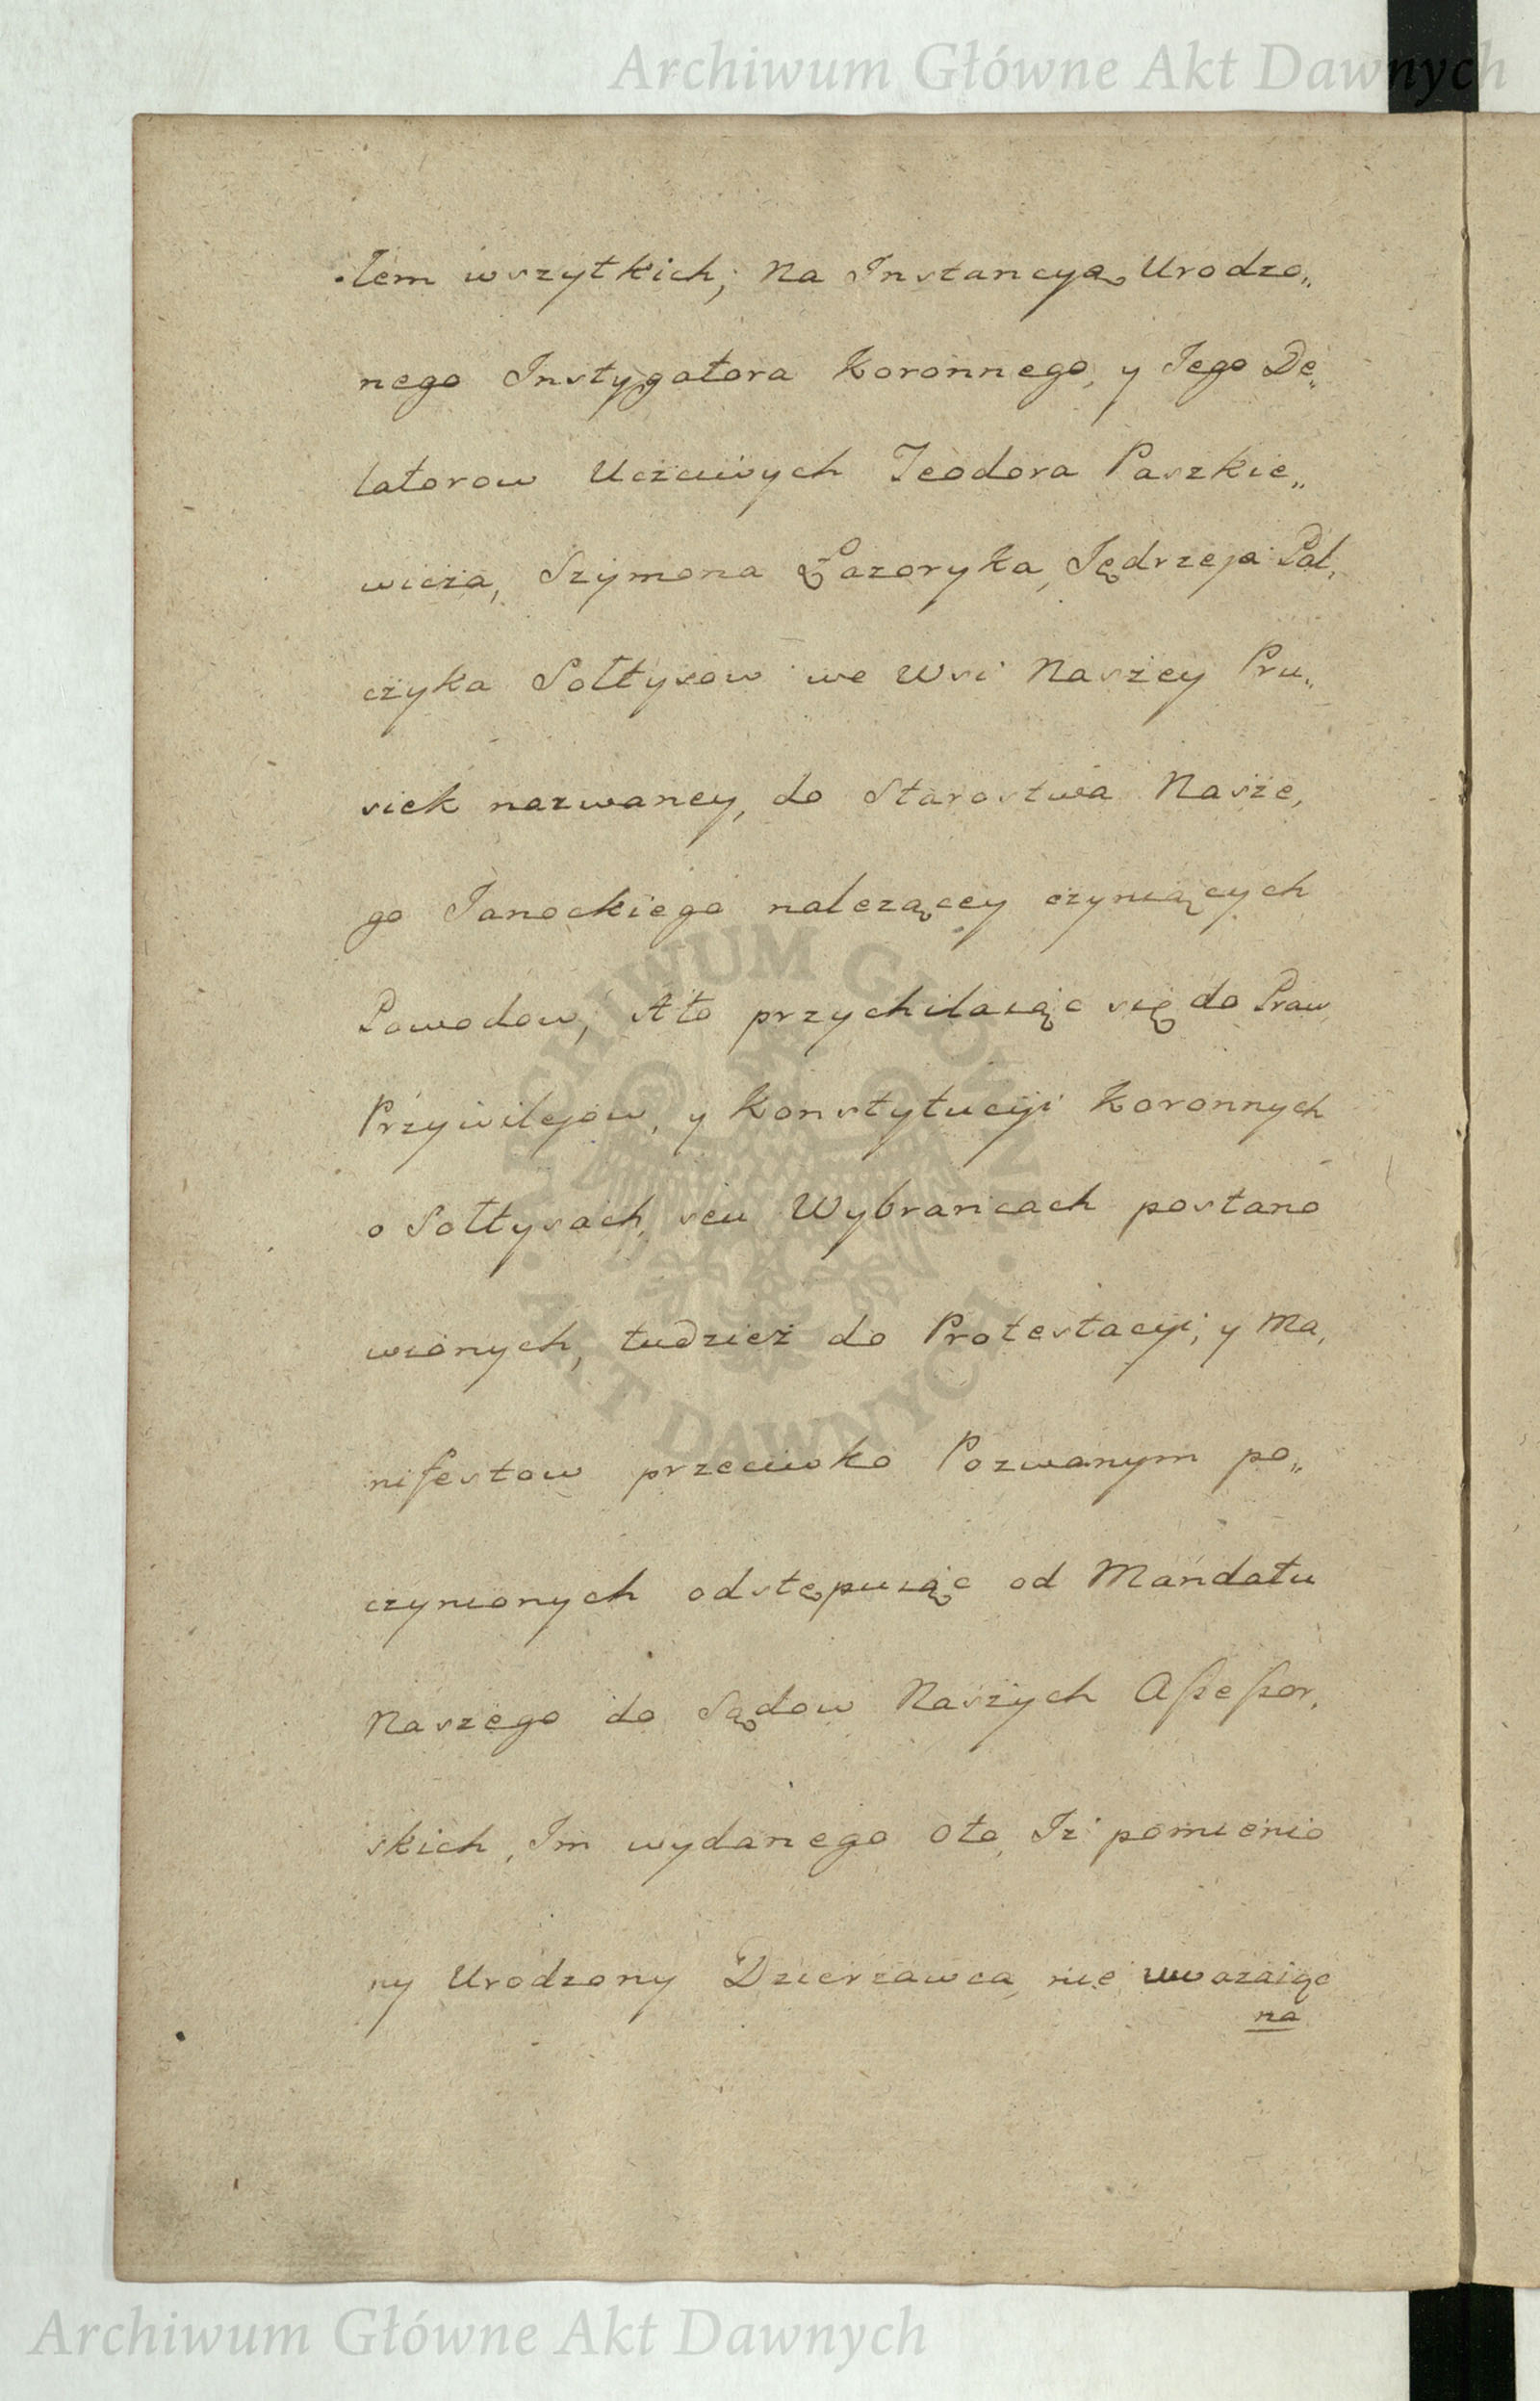 Archiwum Główne Akt Dawnych
.łem wszytkich; Na Instancyą Urodzo„
nego Instygatora Koronnego, y Jego De„
latorow Uczciwych Teodora Paszkie„
wicza, Szymona Łazoryka, Jędrzeja Pal,
czyka Sołtysow we Wsi Naszey Pru„
siek nazwaney, do Starostwa Nasze,
go Sanockiego nalezącey czyniących
Powodow; A to przychilaiąc się do Praw
Przywilejow, y Konstytucyi Koronnych
o Sołtysach, seu Wybrancach postano
wionych, tudzież do Protestacyi, y Ma,
nifestow przeciwko Pozwanym po„
czynionych odstępuiąc od Mandatu
Naszego do Sądow Naszych Assessor,
skich, Im wydanego Oto, Iż pomienio
ny Urodzony Dzierzawca, nie uwazaiąc
na
ARCHIWUM GŁÓWNE
AKT DAWNYCH
Archiwum Główne Akt Dawnych